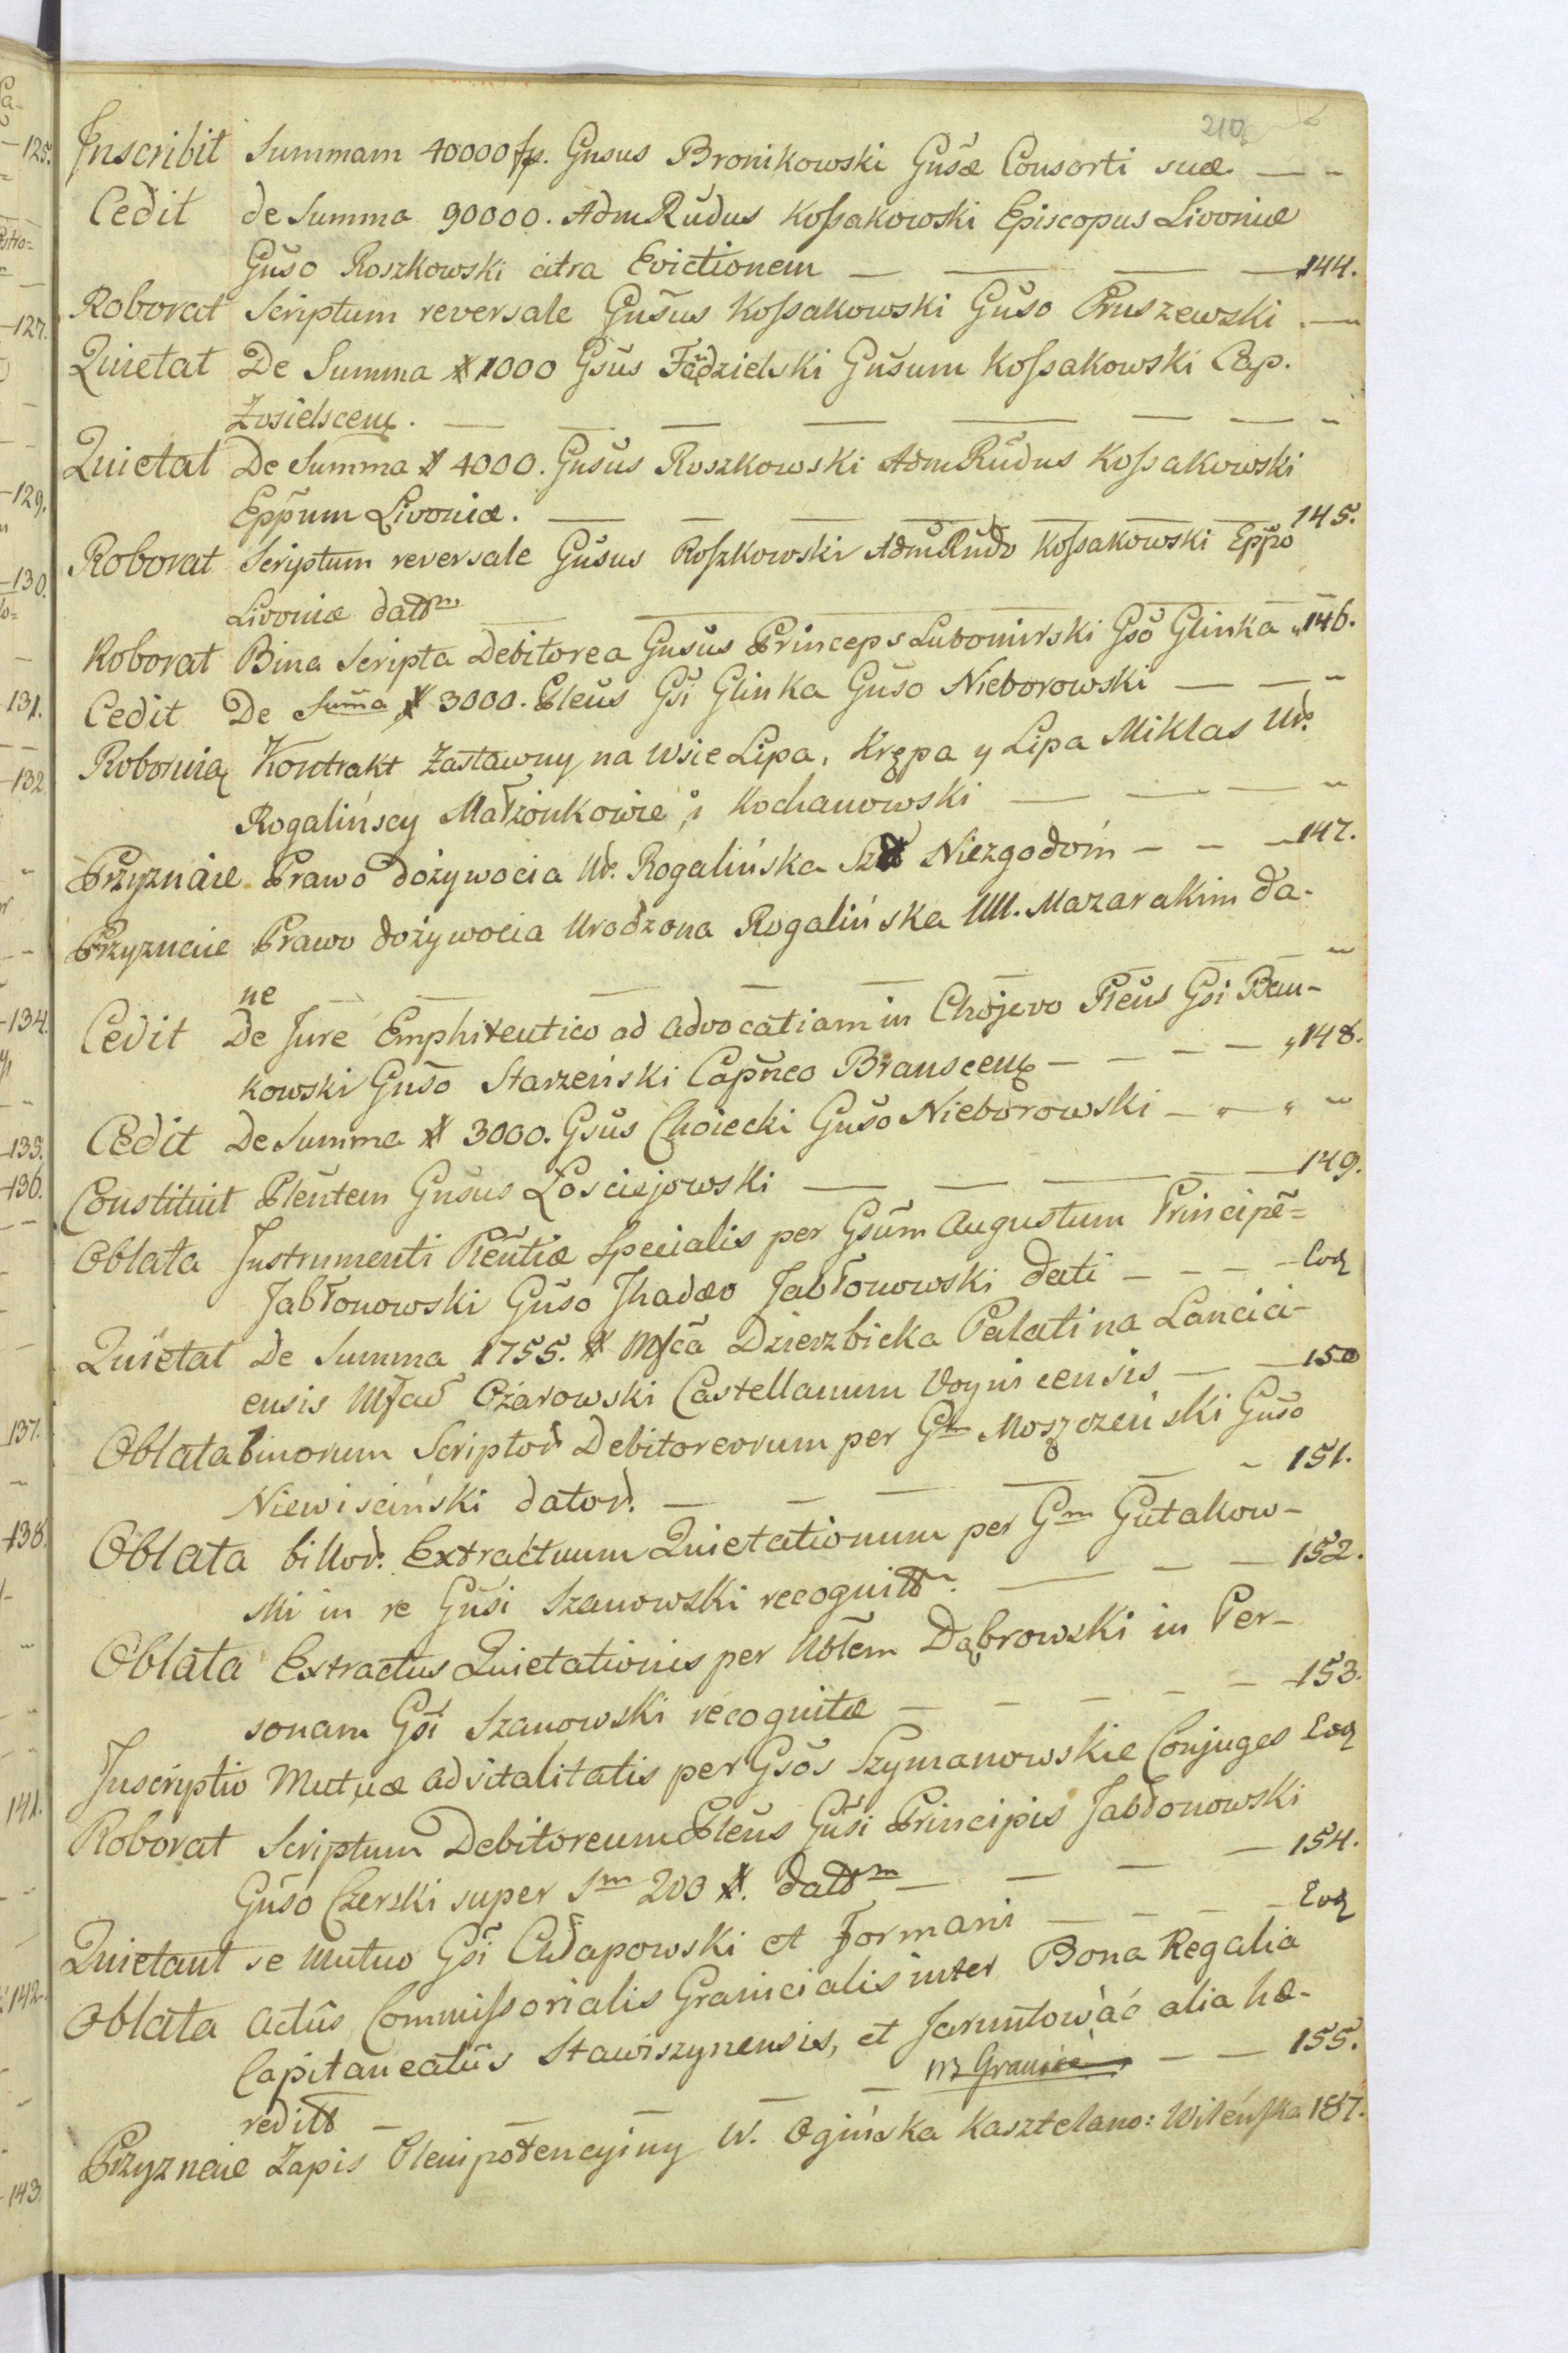 210
Inscribit Summam 40000 fp. Gnsus Bronikowski Gnsæ Consorti suæ — ~
Cedit de Summa 90000. Adm Rūdus Koſsakowski Episcopus Livoniæ
Gnso Roszkowski citra Evictionem — — — — 144.
Roborat Scriptum reversale Gnsus Koſsakowski Gnso Pruszewski . —
Quietat De Summa # 1000 Gsus Fądzielski Gnsum Koſsakowski Cap.
Zosielscen. — — — — — — — ~
Quietat De Summa # 4000. Gnsus Roszkowski Adm Rūdus Koſsakowski
Epp̄um Livoniæ. — — — — — — — 145.
Roborat Scriptum reversale Gnsus Roſzkowski Adm Rūdo Koſsakowski Epp̄o
Livoniæ datt̄m — — —
Roborat Bina Scripta Debitorea Gnsus Princeps Lubomirski Gso Glinka „ 146.
Cedit De Sum̄a # 3000. Plēus Gsi Glinka Gnso Nieborowski — — ~
Roboruią Kontrakt Zastawny na Wsie Lipa, Krępa y Lipa Miklas Ur.
Rogalińscy Małżonkowie, i Kochanowski — — — ~
Przyznaie Prawo dożywocia Ur. Rogalińska Niezgodom — — ~ 147.
Przyznaie Prawo dożywocia Urodzona Rogalińska UU. Mazarakim da-
ne — — — — — — — ~
Cedit De Jure Emphiteutico ad advocatiam in Chojewo Plēus Gsi Bau-
kowski Gnso Starzeński Capn̄eo Branscen — — — — „ 148.
Cedit De Summa # 3000. Gsus Choiecki Gnso Nieborowski — „ — „ ~
Constituit Plēutem Gnsus Łosciejowski — — — — — 149.
Oblata Instrumenti Plēntiæ Specialis per Gsum Augustum Principē=
Jabłonowski Gnso Thadæo Jabłonowski dati — — — — Eoq
Quietat De Summa 1755. # Mfcā Dzierzbicka Palatina Lancici-
ensis Ożarowski Castellanum Voynicensis — — 150
Oblata binorum Scriptor. Debitoreorum per Gm Moszczeński Gnso
Niewiściński dator. — — — — — ~ 151.
Oblata Extractuum Quietationum per Gm Gutakow-
ski in re Gnsi Szanowski recognitt. — — — 152.
Oblata Extractus Quietationis per Nob̄lem Dąbrowski in Per-
sonam Gsi Szanowski recognitæ — — — — — 153.
Inscriptio Mutuæ advitalitatis per Gsos Szymanowskie Conjuges Eoq
Roborat Scriptum Debitoreum Plēus Gnsi Principis Jabłonowski
Gnso Czerski super Sm 200 #. dattm — — — — 154.
Quietant se Mutuo Gsi Chłapowski et Formani — — — — Eoq
Oblata actûs Commiſsorialis Granicialis inter Bona Regalia
Capitaneatûs Stawiszynensis, et alia hæ-
reditt — — — — — — 155.
Przyznaie Zapis Plenipotencyiny W. Ogińska Kasztelano: Wileńſka 187.
125.
127.
129.
130.
131.
132.
134.
135.
136.
137.
138.
141.
142.
143.